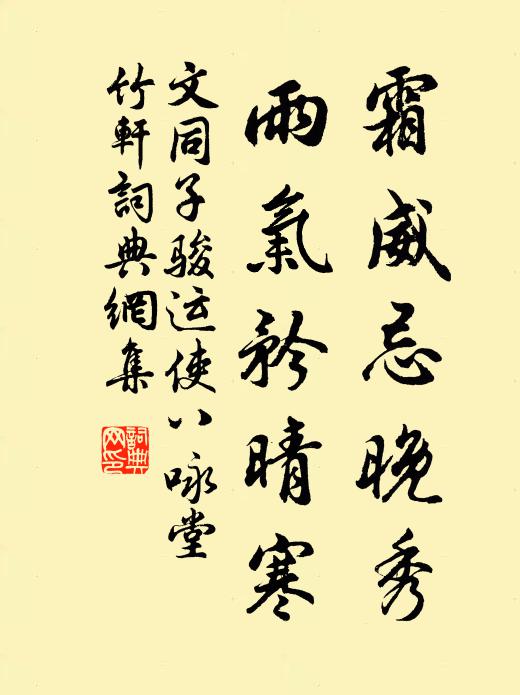 霜威忌晚秀
雨氣矜晴寒
文同子骏运使八咏堂
竹軒詞典網集
詞典网印